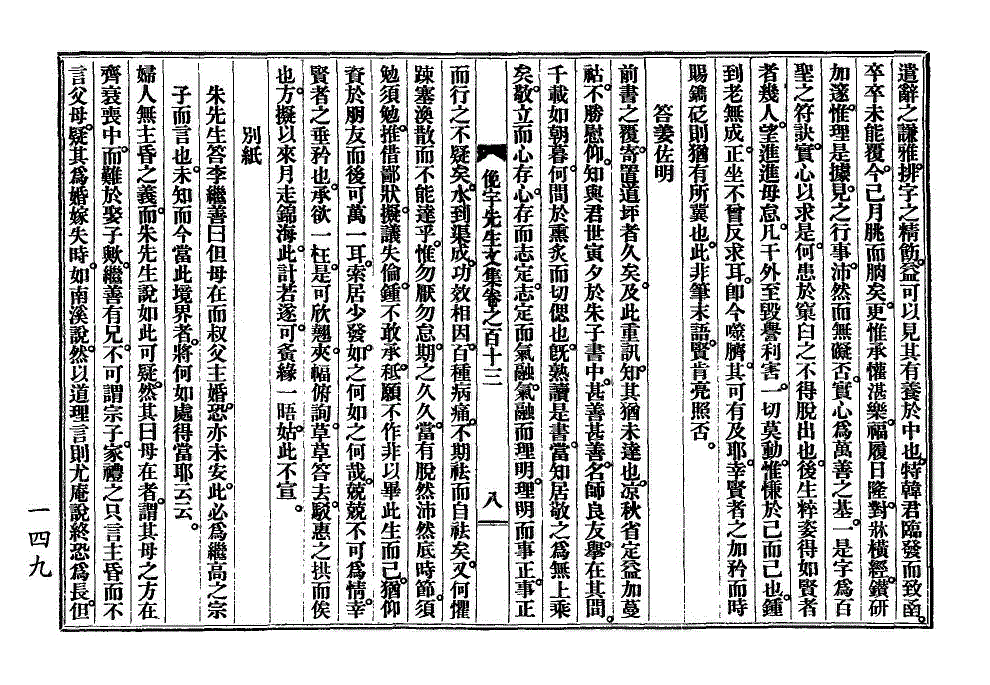 遣辭之謙雅。排字之精飭。益可以見其有養於中也。特韓君臨發而致函。
卒卒未能覆。今已月朓而朒矣。更惟承懽湛樂。福履日隆。對牀橫經。鑽硏
加邃。惟理是據。見之行事。沛然而無礙否。實心爲萬善之基。一是字爲百
聖之符訣。實心以求是。何患於窠臼之不得脫出也。後生粹姿得如賢者
者幾人。望進進毋怠。凡干外至毁譽利害。一切莫動。惟慊於己而已也。鍾
到老無成。正坐不曾反求耳。卽今噬臍。其可有及耶。幸賢者之加矜而時
賜鐫砭則猶有所冀也。此非筆末語。賢肯亮照否。
答姜佐明
前書之覆。寄置道坪者久矣。及此重訊。知其猶未達也。凉秋省定益加蔓
祜。不勝慰仰。知與君世寅夕於朱子書中。甚善甚善。名師良友。擧在其間。
千載如朝暮。何間於熏炙而切偲也。旣熟讀是書。當知居敬之爲無上乘
矣。敬立而心存。心存而志定。志定而氣融。氣融而理明。理明而事正。事正
俛宇先生文集卷之百十三
八
而行之不疑矣。水到渠成。功效相因。百種病痛。不期祛而自祛矣。又何懼
踈塞渙散而不能達乎。惟勿厭勿怠。期之久久。當有脫然沛然底時節。須
勉須勉。推借鄙狀。擬議失倫。鍾不敢承秪。願不作非以畢此生而已。猶仰
資於朋友而後可萬一耳。索居少發。如之何如之何哉。兢兢不可爲情。幸
賢者之垂矜也。承欲一枉。是可欣翹。夾幅俯詢。草草答去。駁惠之拱而俟
也。方擬以來月走錦海。此計若遂。可夤緣一晤。姑此不宣。
別紙
朱先生答李繼善曰但母在而叔父主婚。恐亦未安。此必爲繼高之宗
子而言也。未知而今當此境界者。將何如處得當耶云云。
婦人無主昏之義。而朱先生說如此可疑。然其曰母在者。謂其母之方在
齊衰喪中而難於娶子歟。繼善有兄。不可謂宗子。家禮之只言主昏而不
言父母。疑其爲婚嫁失時。如南溪說。然以道理言則尤庵說終恐爲長。但
一四九